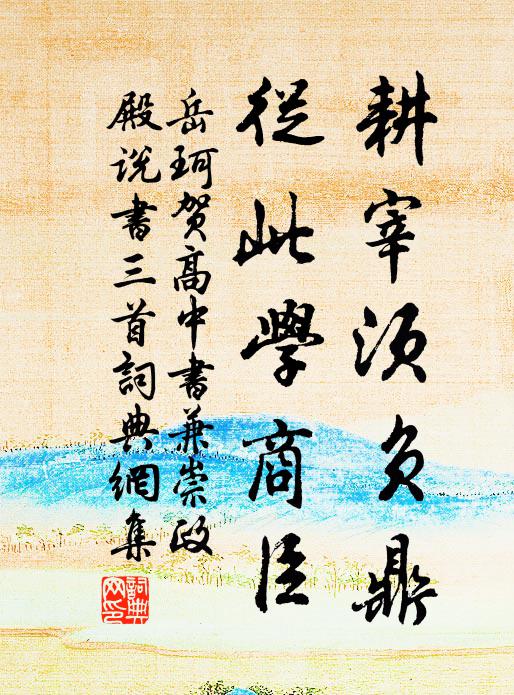 耕宰須負鼎
從此學商臣
岳珂賀高中書兼崇政
殿说書三首詞典網集